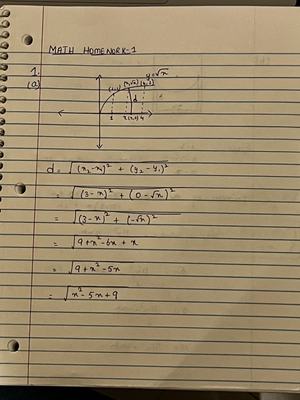 MATH HOMEWORK-1
1.
(a)
y=√x
(x,√x)
(1,1)
d
1
4
d = √((x₂-x₁)² + (y₂-y₁)²)
= √((3-x)² + (0-√x)²)
= √((3-x)² + (-√x)²)
= √(9+x²-6x+x)
= √(9+x²-5x)
= √(x²-5x+9)